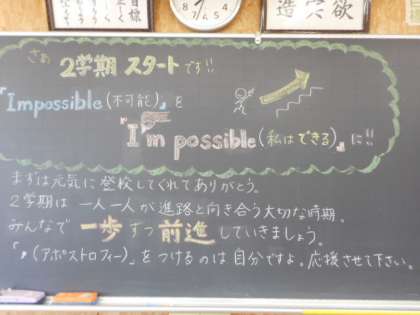 さぁ 2学期 スタートです!!
「Impossible(不可能)」を
「I'm possible(私はできる)」に!!
まずは元気に登校してくれてありがとう。
2学期は一人一人が進路と向き合う大切な時期。
みんなで一歩ずつ前進していきましょう。
「'(アポストロフィー)」をつけるのは自分ですよ。応援させて下さい。